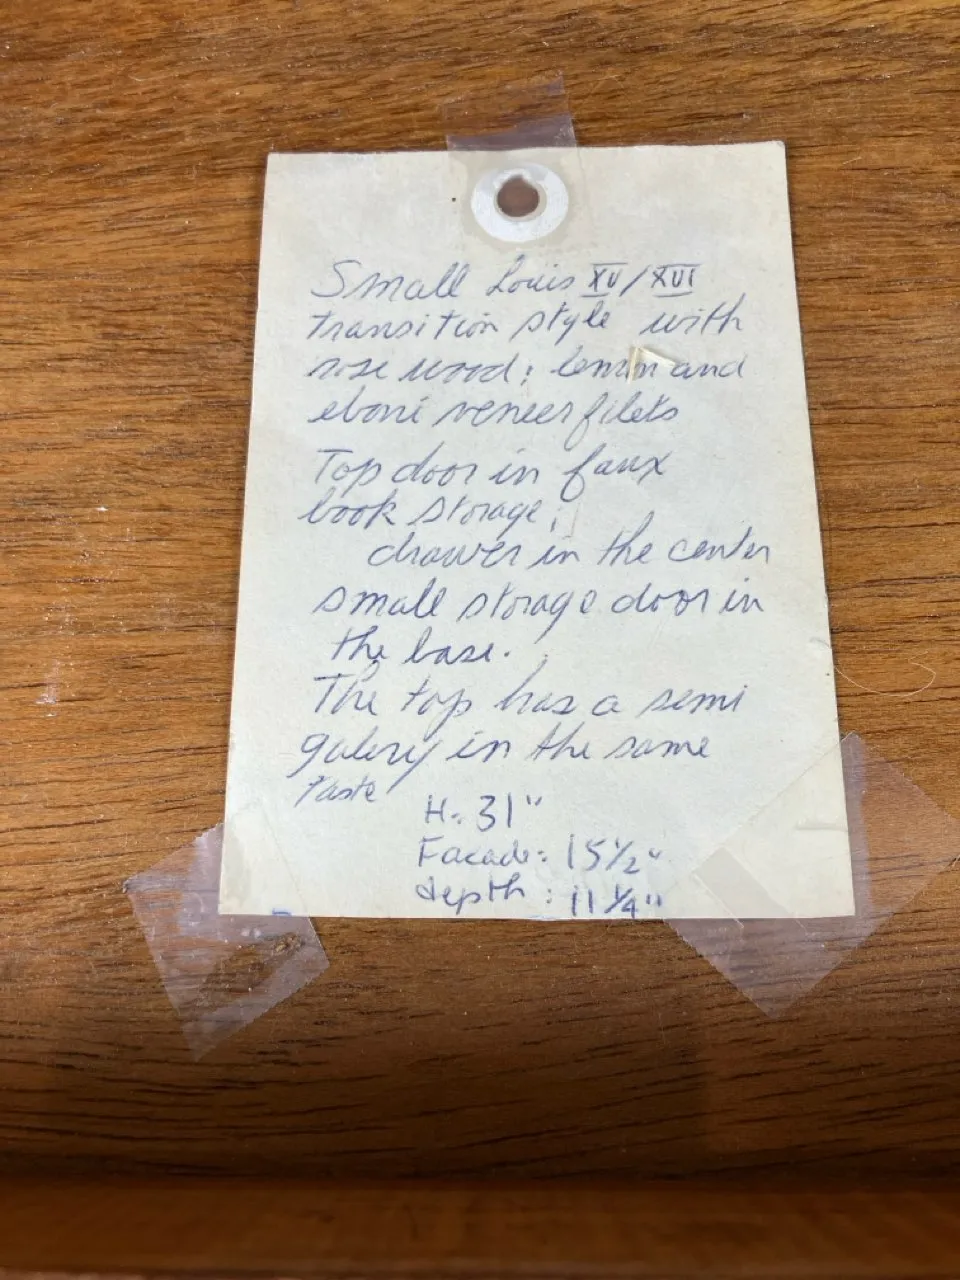 Small Louis XV/XVI
transition style with
rose wood; lemon and
eboni veneer filets
Top door in faux
book storage;
drawer in the center
small storage door in
the base.
The top has a semi
galery in the same
taste
H. 31"
Facade: 15 1/2"
depth: 11 1/4"